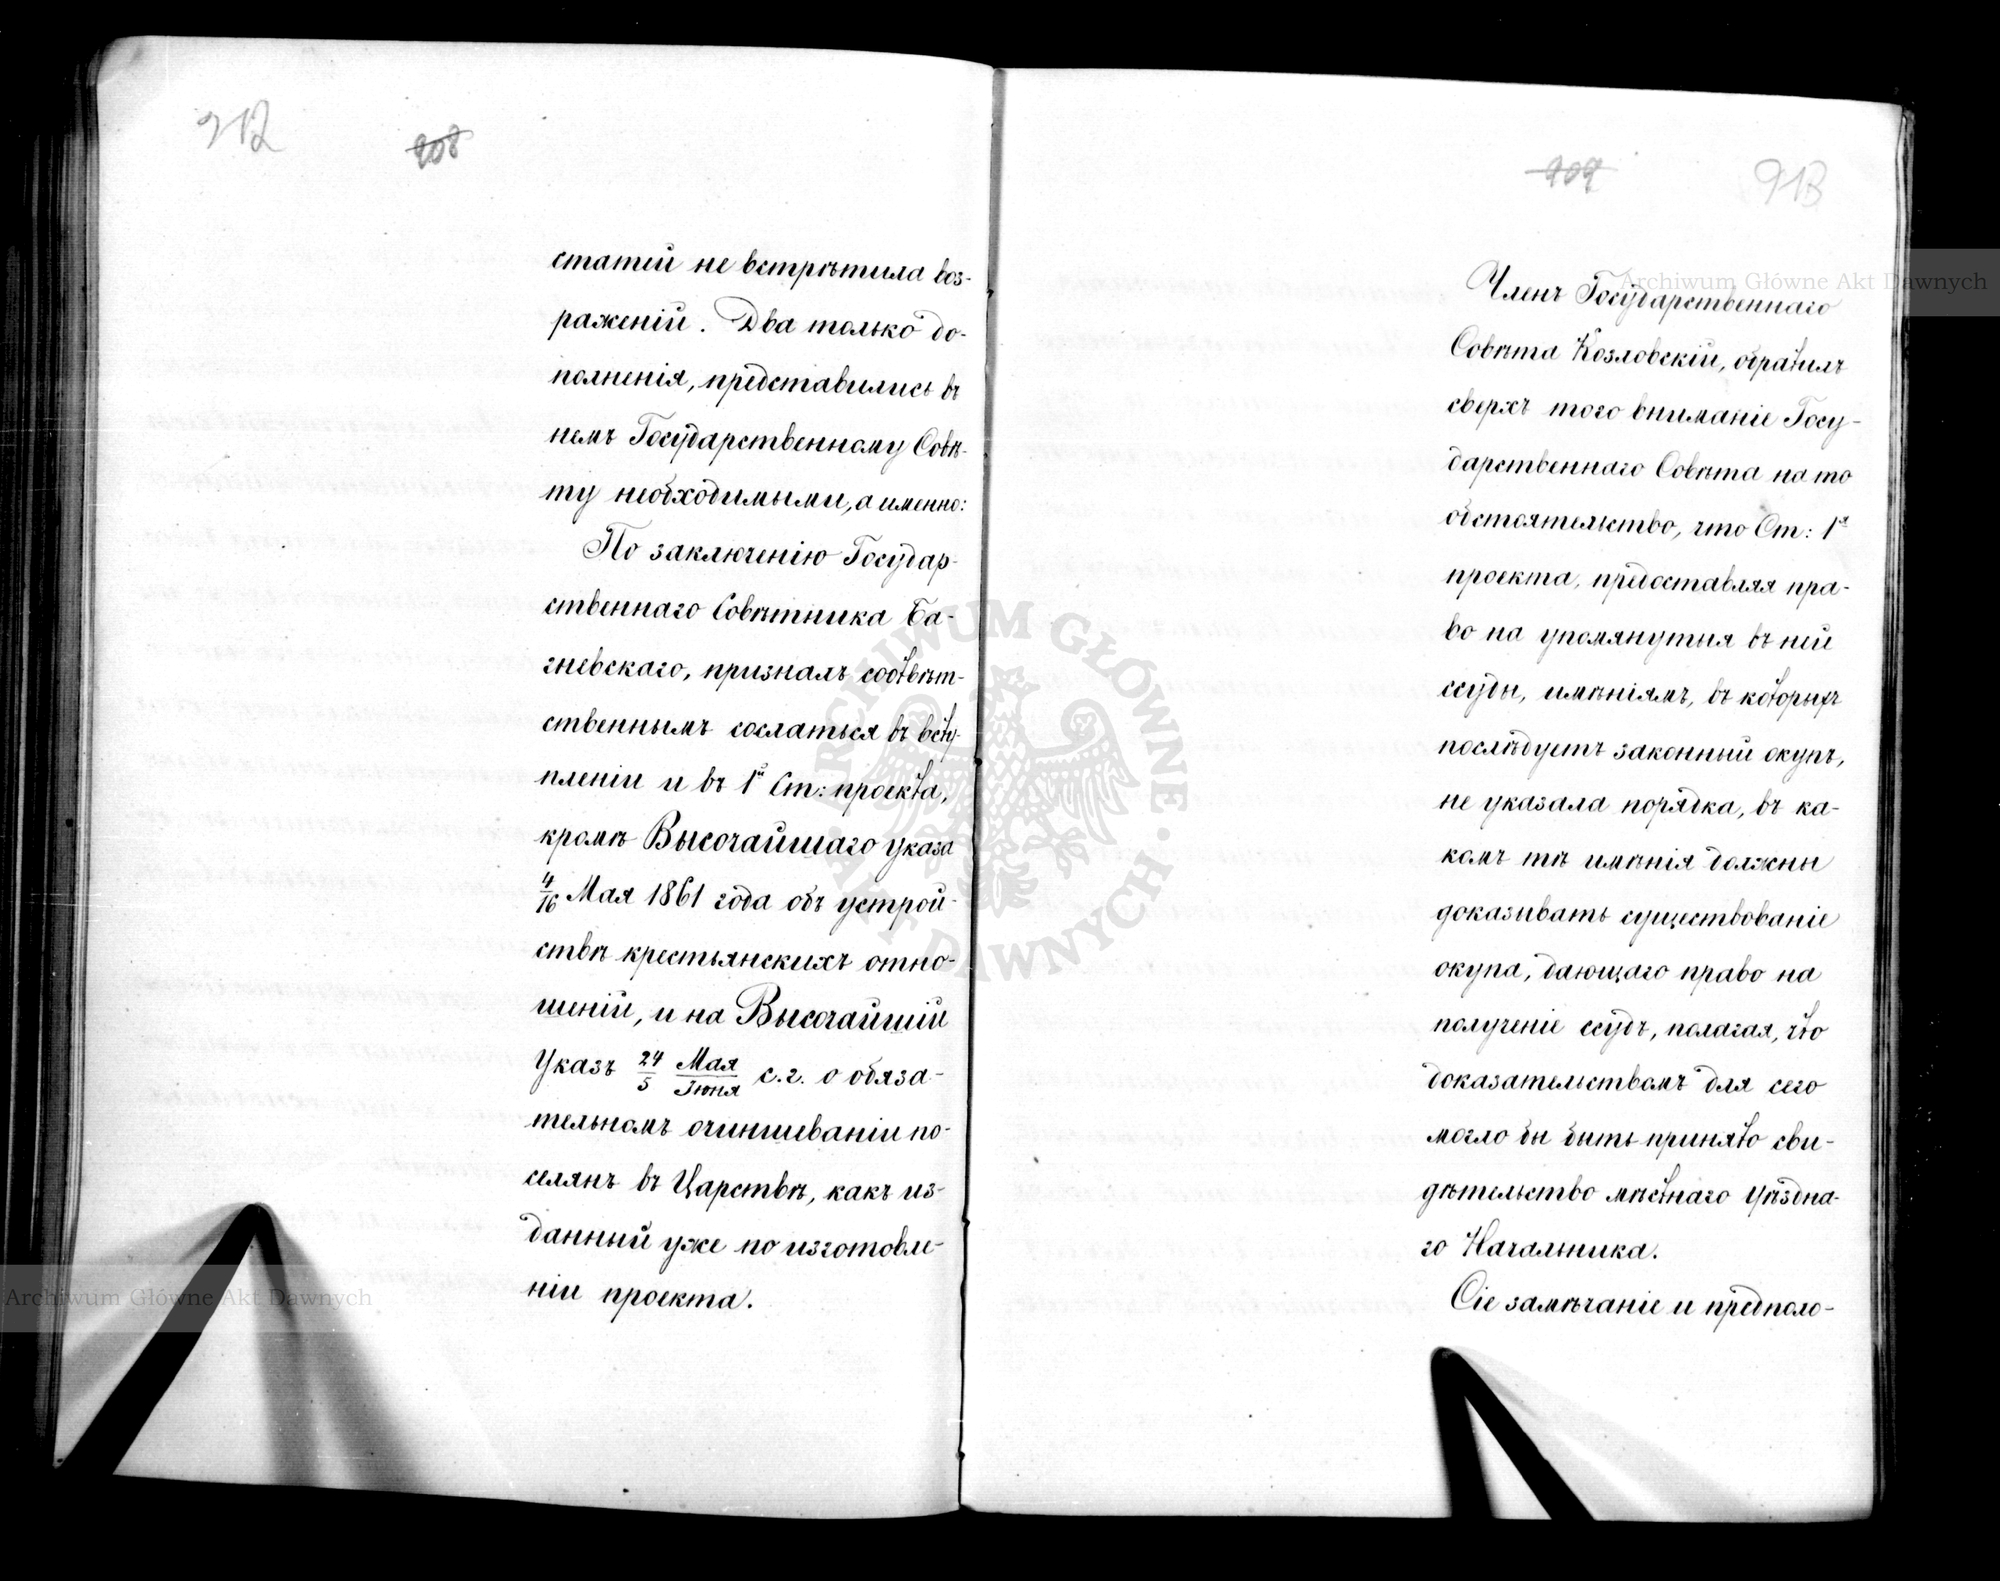 912
908
статей не встрѣтила воз-
раженій. Два только до-
полненія, представились въ
немъ Государственному Совѣ-
ту необходимыми, а именно:
По заключенію Государ-
ственнаго Совѣтника Ба-
гневскаго, призналъ соотвѣт-
ственнымъ сослаться въ всту-
пленіи и въ 1й Ст: проекта,
кромѣ Высочайшаго указа
4/16 Мая 1861 года объ устрой-
ствѣ крестьянскихъ отно-
шеній, и на Высочайшій
Указъ 24/5 Мая/Іюня с.г. о обяза-
тельномъ очиншеваніи по-
селянъ въ Царствѣ, какъ из-
данный уже по изготовле-
ніи проекта.
909
913
Членъ Государственнаго
Совѣта Козловскій, обратилъ
сверхъ того вниманіе Госу-
дарственнаго Совѣта на то
обстоятельство, что Ст: 1я
проекта, предоставляя пра-
во на упомянутыя въ ней
ссуды, имѣніямъ, въ которыхъ
послѣдуетъ законный окупъ,
не указала порядка, въ ка-
комъ тѣ имѣнія должны
доказывать существованіе
окупа, дающаго право на
полученіе ссудъ, полагая, что
доказательствомъ для сего
могло бы быть принято сви-
дѣтельство мѣстнаго Уѣздна-
го Начальника.
Сіе замѣчаніе и предполо-
Archiwum Główne Akt Dawnych
Archiwum Główne Akt Dawnych
ARCHIWUM GŁÓWNE · AKT DAWNYCH ·